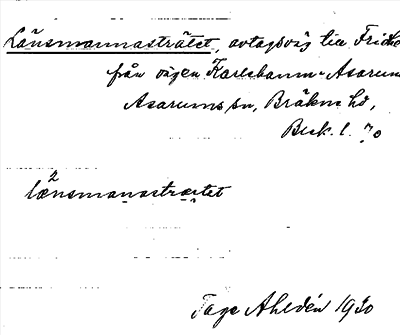 Länsmannasträtet, avtagsväg till Friche
från vägen Karlshamn-Asarum
Asarums sn, Bräkne hd,
Blek. l.
2
lænsmanastrætet
Tage Ahldén 1930